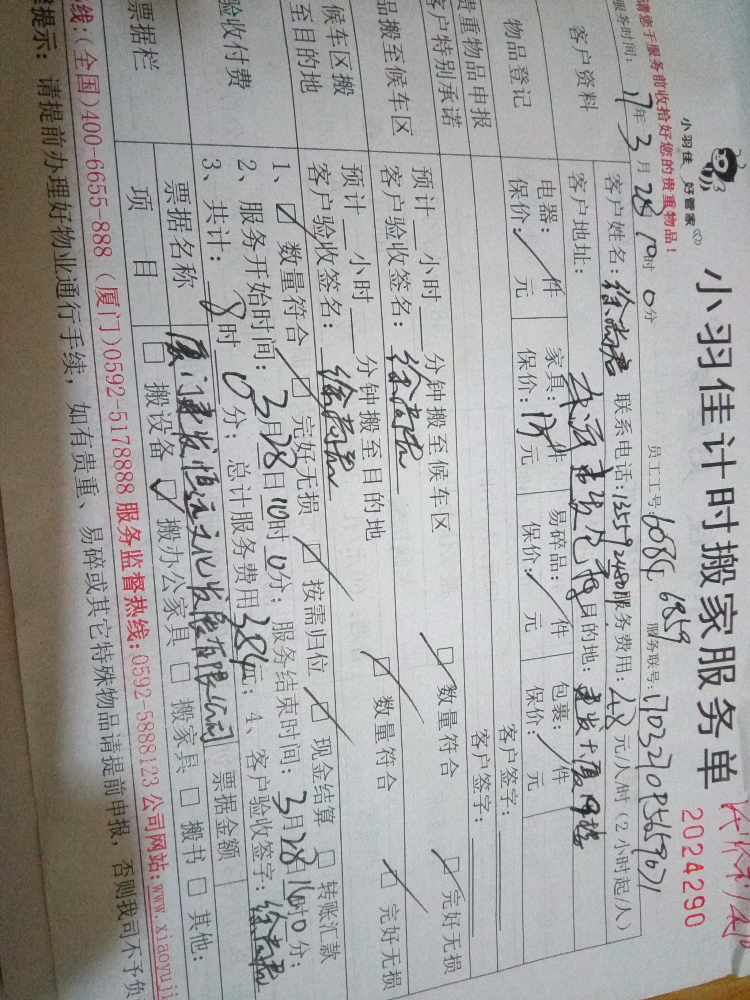 小羽佳计时搬家服务单
2024290
小羽佳 好管家
请您于服务前收拾好您的贵重物品!
员工工号: 6085 6859 服务联号:
服务时间: 17年3月28 10时0分
客户资料
客户姓名: 联系电话: 服务费用: 48元/人/时(2小时起/人)
客户地址: 目的地:
物品登记
电器: / 件 家具: 件 易碎品: / 件 包裹: / 件
保价: 元 保价: 元 保价: 元 保价: 元
贵重物品申报 客户签字:
客户特别承诺 客户签字:
品搬至候车区
预计 小时 分钟搬至候车区 数量符合 完好无损
客户验收签名:
候车区搬至目的地
预计 小时 分钟搬至目的地 数量符合 完好无损
客户验收签名:
验收付费
1、 数量符合 完好无损 按需归位 现金结算 转账汇款
2、服务开始时间: 3月28日10时0分; 服务结束时间: 3月28日16时0分;
3、共计: 8时0分; 总计服务费用384元; 4、客户验收签字:
票据栏
票据名称 厦门建发恒远文化发展有限公司 票据金额
项目 搬设备 搬办公家具 搬家具 搬书 其他:
线:(全国)400-6655-888 (厦门)0592-5178888 服务监督热线:0592-5888123 公司网站:www.xiaoyuji
提示: 请提前办理好物业通行手续, 如有贵重、易碎或其它特殊物品请提前申报, 否则我司不予负